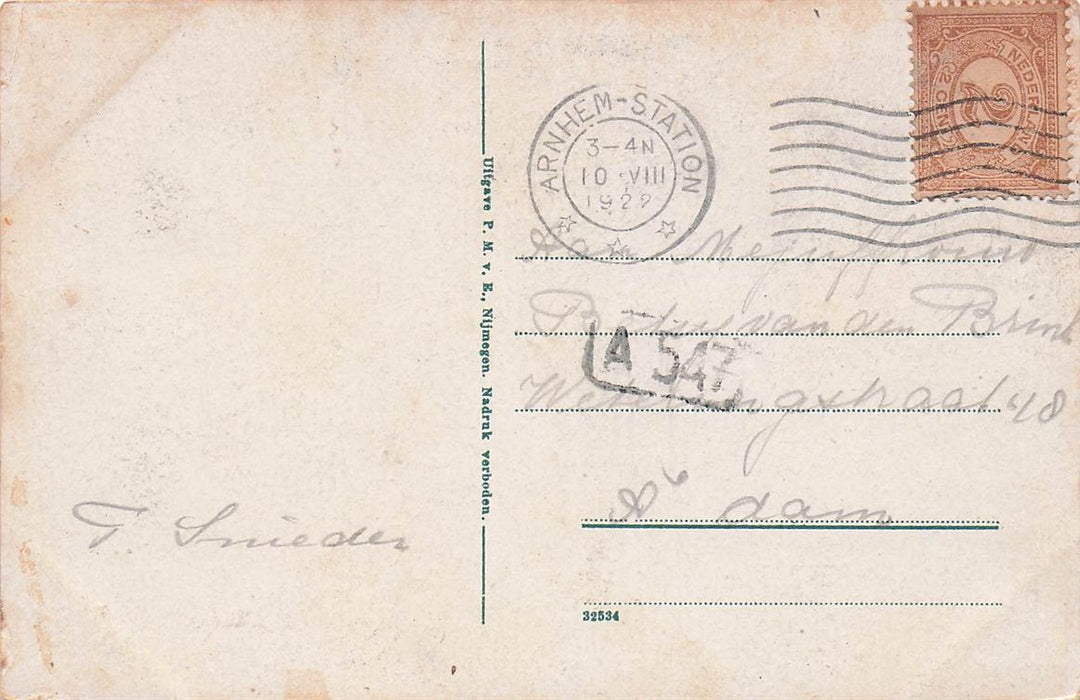 T. Snieder
Uitgave P. M. v. E., Nijmegen. Nadruk verboden.
ARNHEM-STATION
3-4N
10 VIII
1922
NEDERLAND
2½ CENT
Aan Mejuffrouw
van den Brink
A 547
Weteringstraat 48
A'dam
32534